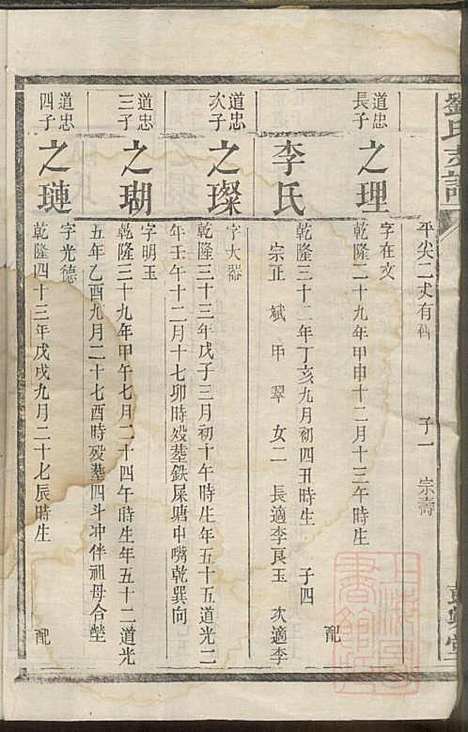 劉氏支譜
平尖二丈有碑 子一 宗壽
道忠長子
之理
字在文
乾隆二十九年甲申十二月十三午時生 配
李氏
乾隆三十二年丁亥九月初四丑時生 子四
宗正 斌 甲 翠 女二 長適李良玉 次適李
道忠次子
之璨
字大器
乾隆三十三年戊子三月初十午時生年五十五道光二
年壬午十二月十七卯時歿塟鉄屎塘中嘴乾巽向
道忠三子
之瑚
字明玉
乾隆三十九年甲午七月二十四午時生年五十二道光
五年乙酉九月二十七酉時歿塟四斗冲伴祖母合塋
道忠四子
之璉
字光德
乾隆四十三年戊戌九月二十七辰時生 配